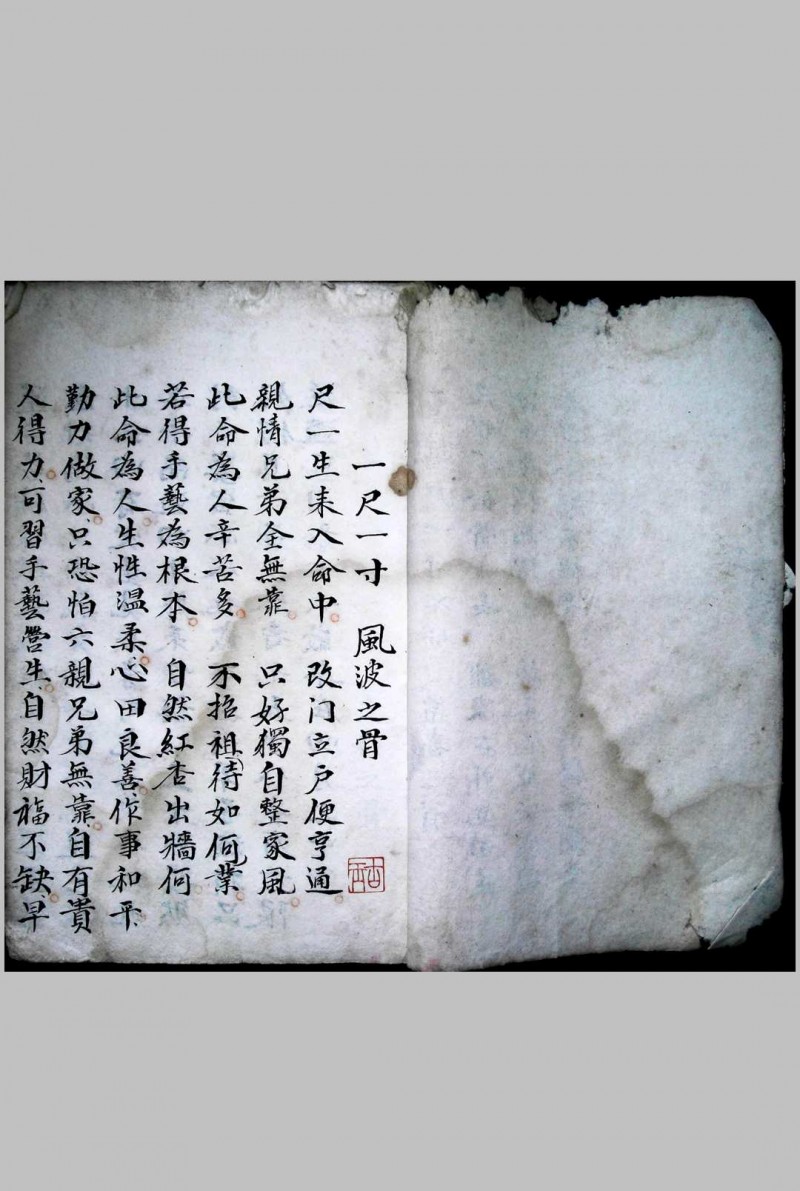 一尺一寸 風波之骨
尺一生来入命中 改门立户便亨通
親情兄弟全無靠 只好獨自整家風
此命為人辛苦多 不招祖待如何業
若得手藝為根本 自然紅杏出牆何
此命為人生性温柔心田良善作事和平
勤力做家只恐怕六親兄弟無靠自有貴
人得力可習手藝營生自然財福不缺早